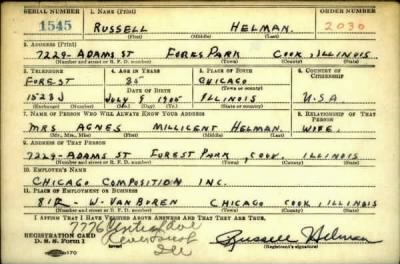 SERIAL NUMBER 1. NAME (Print) ORDER NUMBER
1545 RUSSELL HELMAN 2030
(First) (Middle) (Last)
2. ADDRESS (Print)
7229-ADAMS ST FORES PARK COOK, ILLINOIS
(Number and street or R. F. D. number) (Town) (County) (State)
3. TELEPHONE 4. AGE IN YEARS 5. PLACE OF BIRTH 6. COUNTRY OF CITIZENSHIP
FOREST 35 CHICAGO
DATE OF BIRTH (Town or county)
1523J JULY 8 1905 ILLINOIS U.S.A
(Exchange) (Number) (Mo.) (Day) (Yr.) (State or country)
7. NAME OF PERSON WHO WILL ALWAYS KNOW YOUR ADDRESS 8. RELATIONSHIP OF THAT PERSON
MRS AGNES MILLICENT HELMAN WIFE.
(Mr., Mrs., Miss) (First) (Middle) (Last)
9. ADDRESS OF THAT PERSON
7229-ADAMS ST FOREST PARK, COOK, ILLINOIS
(Number and street or R. F. D. number) (Town) (County) (State)
10. EMPLOYER'S NAME
CHICAGO COMPOSITION INC.
11. PLACE OF EMPLOYMENT OR BUSINESS
W-VAN BUREN CHICAGO COOK, ILLINOIS
(Number and street or R. F. D. number) (Town) (County) (State)
I AFFIRM THAT I HAVE VERIFIED ABOVE ANSWERS AND THAT THEY ARE TRUE.
7776
REGISTRATION CARD
D. S. S. Form 1 Ill Russell Helman
(Registrant's signature)